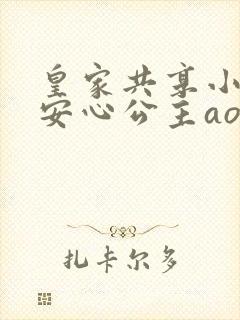 皇家共享小
安心公主ao
扎卡尔多